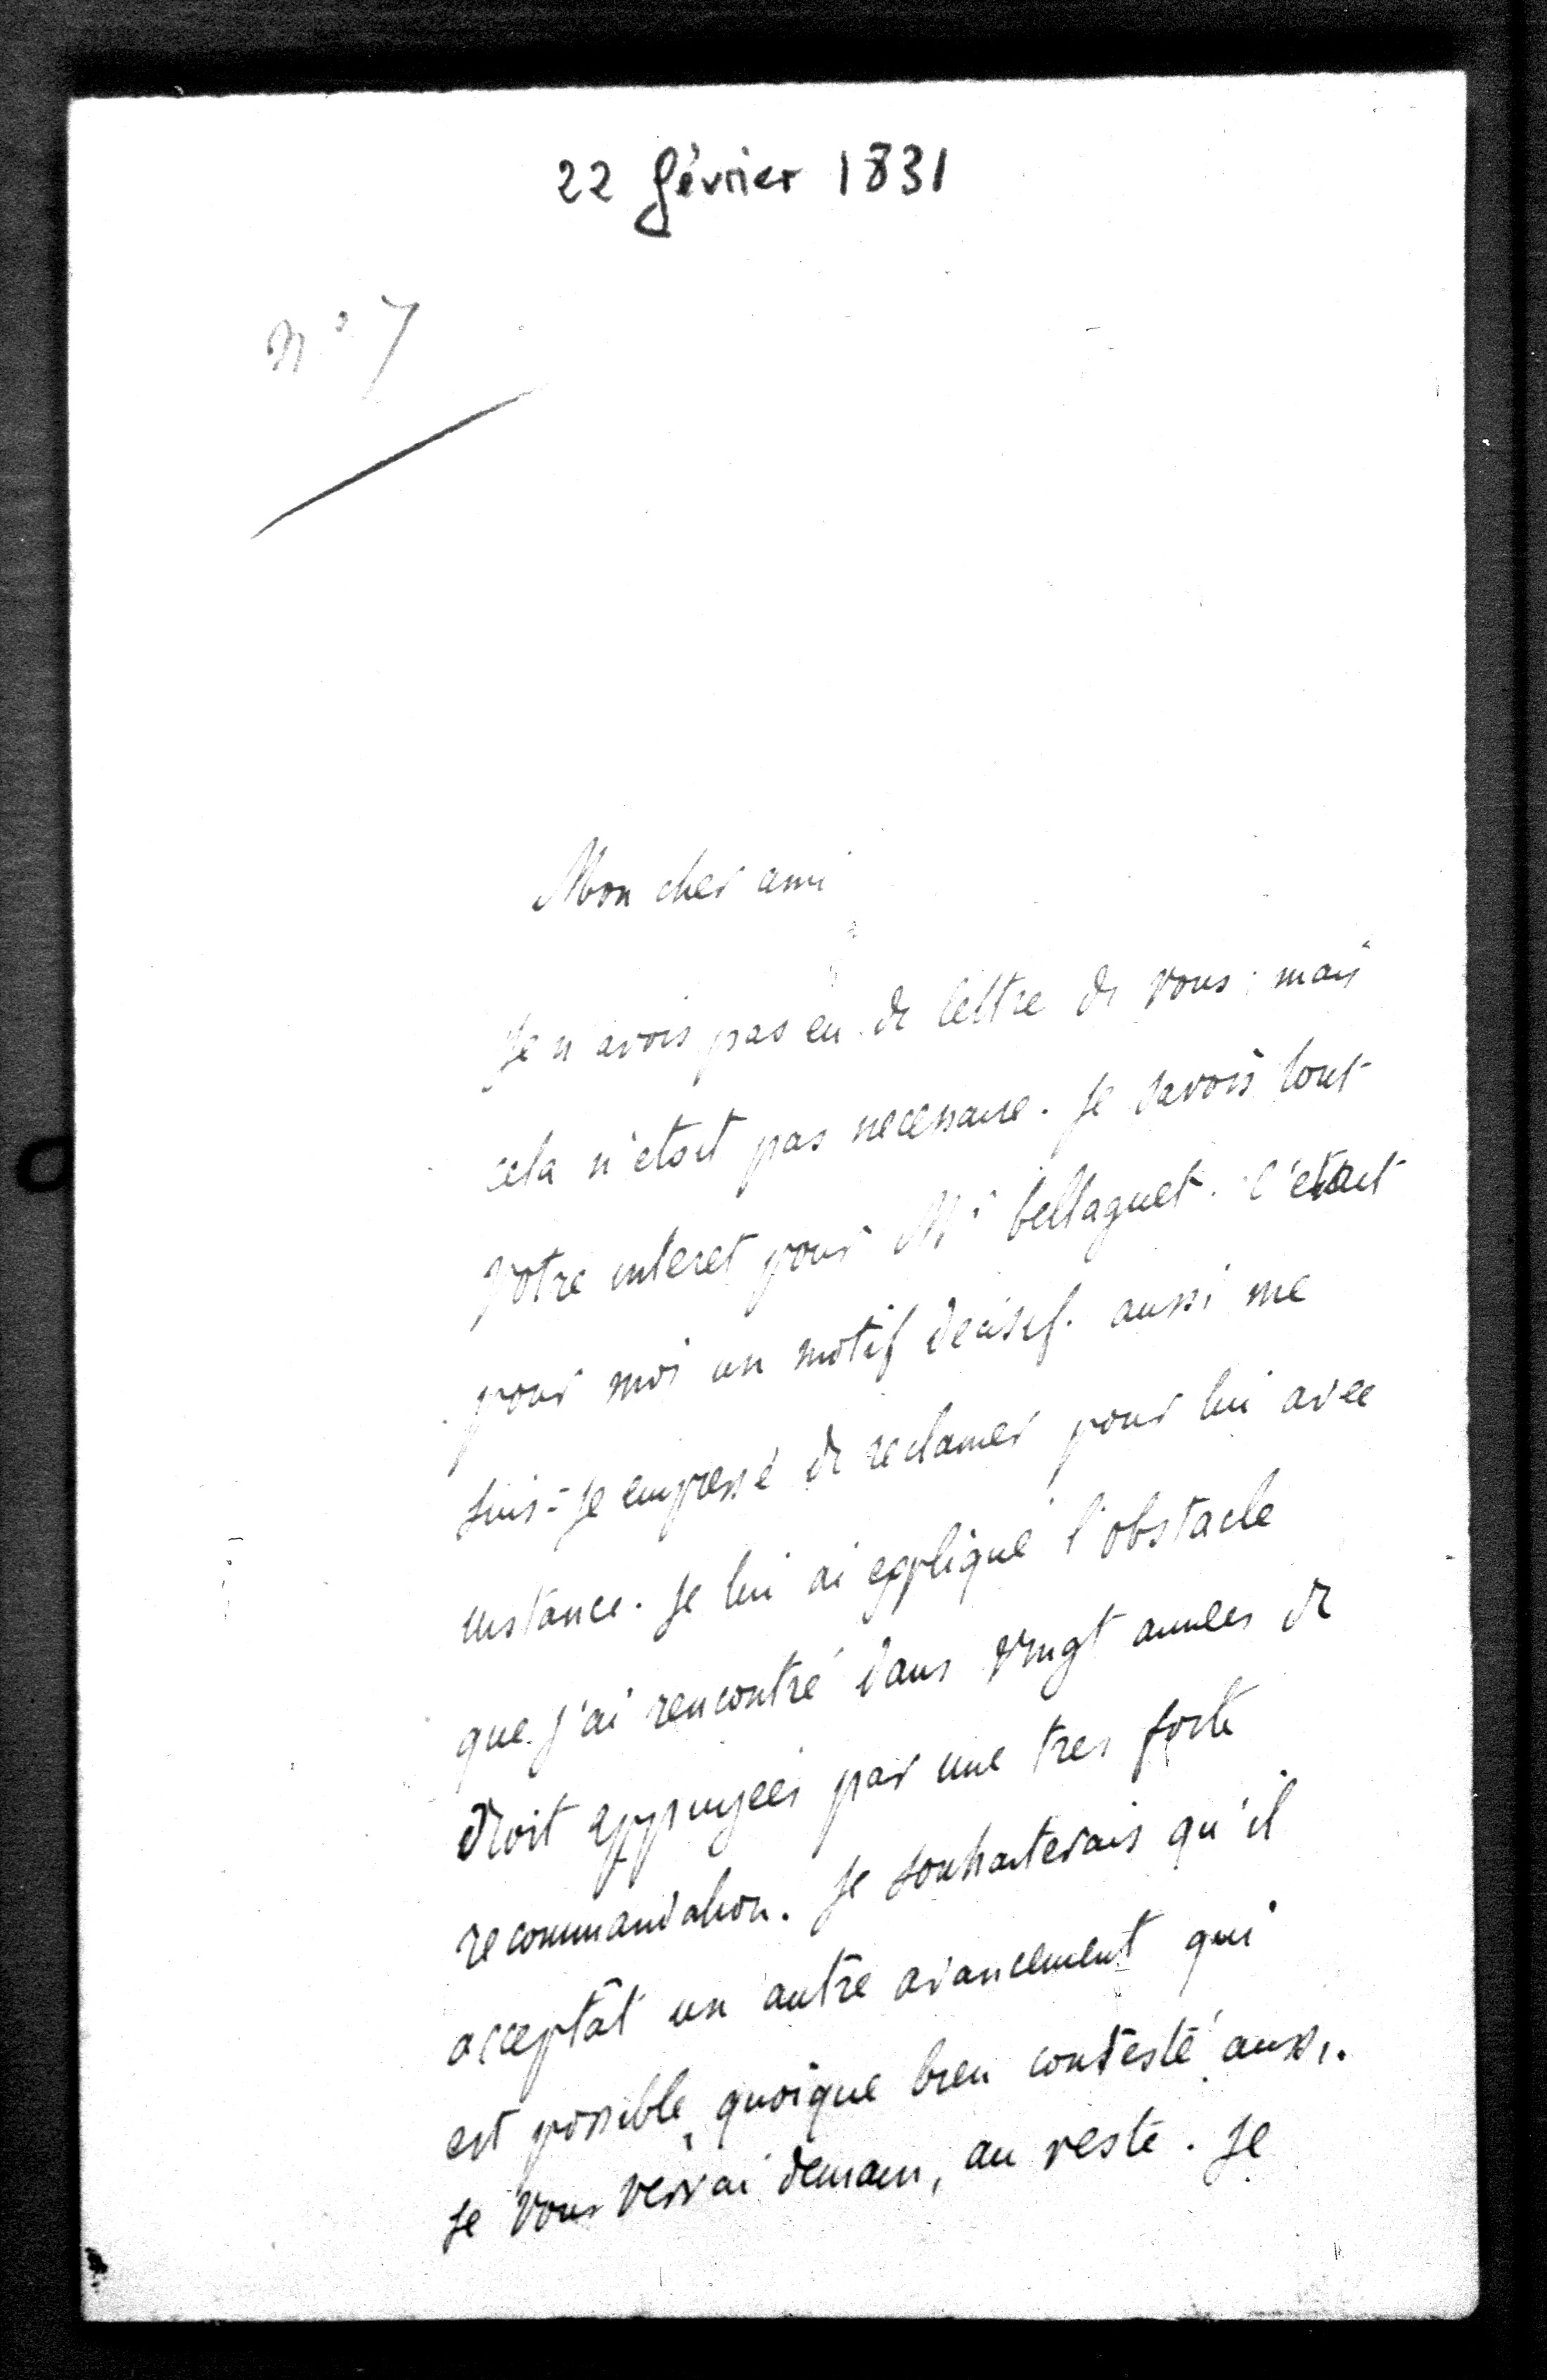 22 février 1831
n° 7
Mon cher ami
Je n'avois pas eu de lettre de vous. mais
cela n'etoit pas necessaire. Je savois tout
votre interet pour Mr bellaguet. c'etait
pour moi un motif decisif. aussi me
suis-je empressé de reclamer pour lui avec
instance. Je lui ai expliqué l'obstacle
que j'ai rencontré dans vingt années de
droit appuyees par une tres forte
recommandation. Je souhaiterais qu'il
acceptât un autre avancement qui
est possible, quoique bien contesté aussi.
Je vous verrai demain, au reste. Je